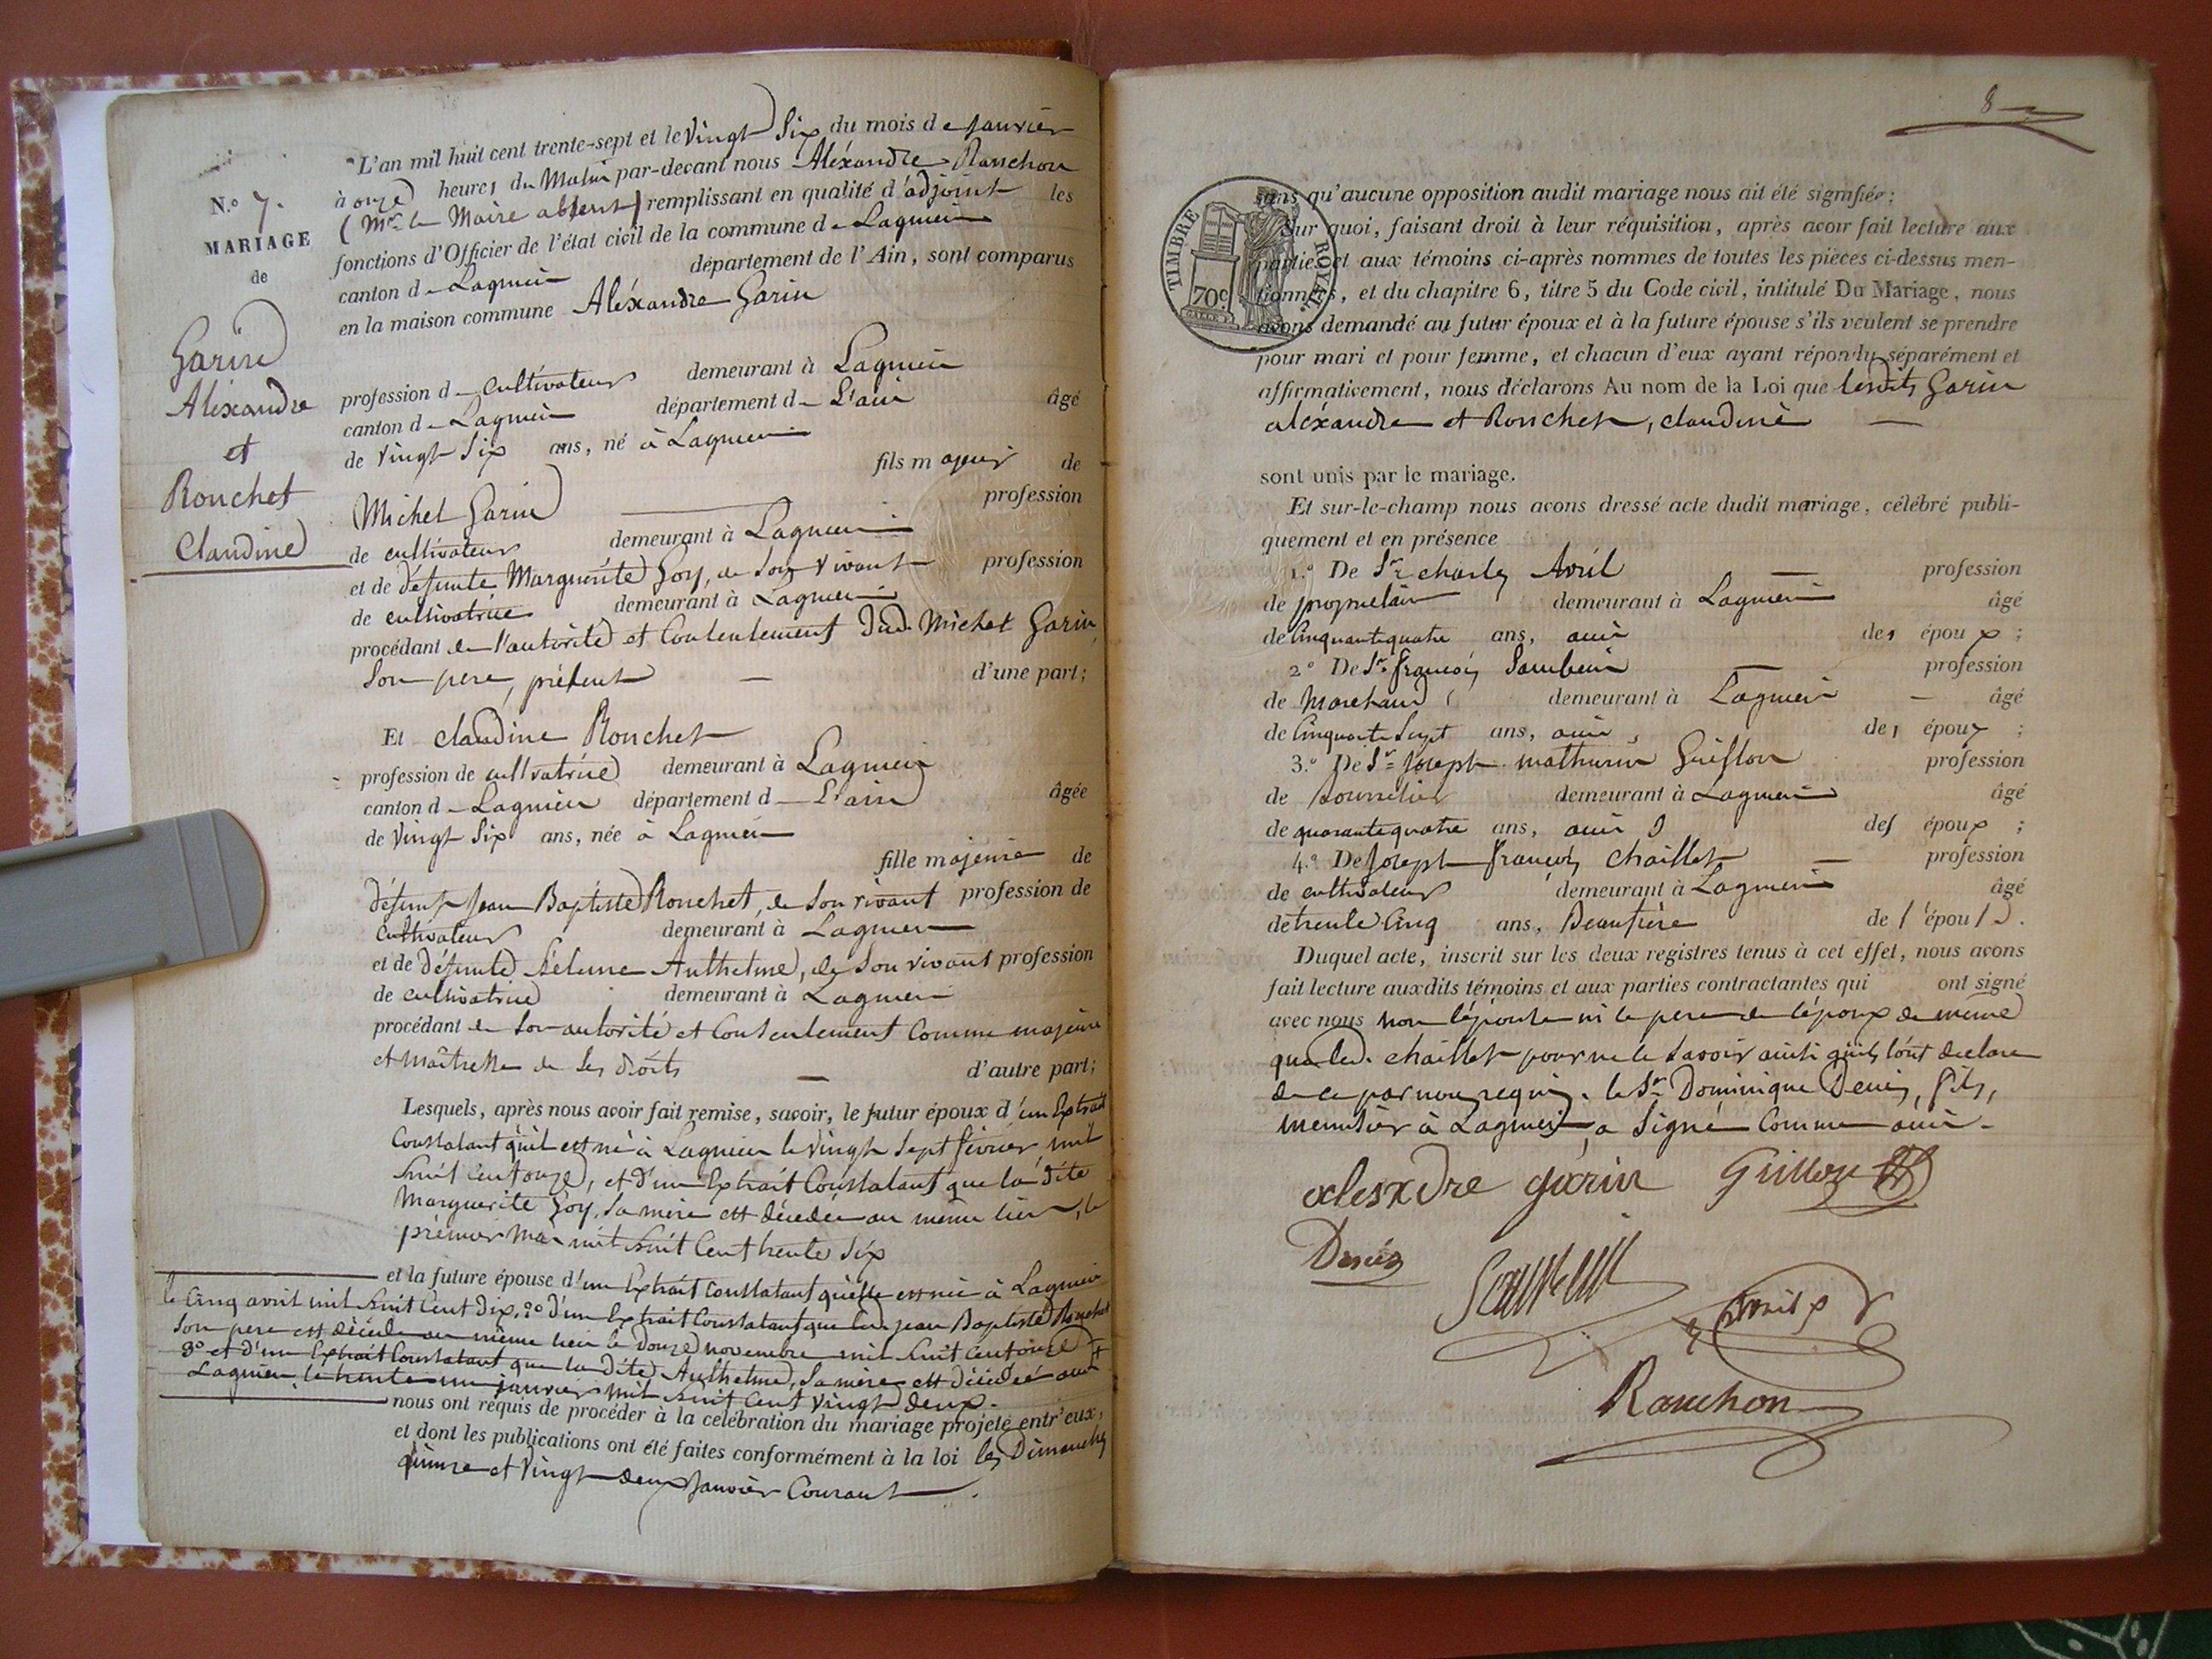 N.º 7.
MARIAGE
de
Garin
Aléxandre
et
Ronchet
Claudine
L'an mil huit cent trente-sept et le vingt Six du mois de Janvier
à onze heures du Matin par-devant nous Aléxandre Ranchon
(Mr. le Maire absent) remplissant en qualité d'adjoint les
fonctions d'Officier de l'état civil de la commune de Lagnieu
canton de Lagnieu département de l'Ain, sont comparus
en la maison commune Aléxandre Garin
profession de Cultivateur demeurant à Lagnieu
canton de Lagnieu département de L'ain âgé
de vingt Six ans, né à Lagnieu
fils majeur de
Michel Garin profession
de cultivateur demeurant à Lagnieu
et de défunte Marguerite Goy, de Son vivant profession
de cultivatrice demeurant à Lagnieu
procédant de l'autorité et Consentement dud. Michel Garin,
Son pere, présent d'une part;
Et claudine Ronchet
profession de cultivatrice demeurant à Lagnieu
canton de Lagnieu département de L'ain âgée
de vingt Six ans, née à Lagnieu
fille majeure de
défunt Jean Baptiste Ronchet, de Son vivant profession de
Cultivateur demeurant à Lagnieu
et de défunte Anthelme, de Son vivant profession
de cultivatrice demeurant à Lagnieu
procédant de Son autorité et Consentement Comme majeure
et maîtresse de Ses droits d'autre part;
Lesquels, après nous avoir fait remise, savoir, le futur époux d'un Extrait
Constatant qu'il est né à Lagnieu le vingt Sept février mil
huit Cent onze, et d'un Extrait Constatant que la dite
Marguerite Goy, Sa mère est décedée au même lieu, le
prémier Mai mil huit Cent trente Six
et la future épouse d'un Extrait Constatant qu'elle est née à Lagnieu
le Cinq avril mil huit Cent dix, 2º d'un Extrait Constatant que led. jean Baptiste Ronchet
Son pere est décédé au même lieu le Douze novembre mil huit Cent onze
3º et d'un Extrait Constatant que la dite Anthelme, Sa mère est décédée aud.
Lagnieu, le trente un janvier mil huit Cent vingt deux.
nous ont requis de procéder à la celébration du mariage projeté entr'eux,
et dont les publications ont été faites conformément à la loi les Dimanches
quinze et vingt deux Janvier Courant.
8
TIMBRE ROYAL
70c
sans qu'aucune opposition audit mariage nous ait été signifiée;
Sur quoi, faisant droit à leur réquisition, après avoir fait lecture aux
parties et aux témoins ci-après nommes de toutes les pièces ci-dessus men-
tionnées, et du chapitre 6, titre 5 du Code civil, intitulé Du Mariage, nous
avons demandé au futur époux et à la future épouse s'ils veulent se prendre
pour mari et pour femme, et chacun d'eux ayant répondu séparément et
affirmativement, nous déclarons Au nom de la Loi que lesdits Garin
aléxandre et Ronchet, claudine
sont unis par le mariage.
Et sur-le-champ nous avons dressé acte dudit mariage, célébré publi-
quement et en présence
1.º De Sr. charles Avril profession
de proprietaire demeurant à Lagnieu âgé
de Cinquante quatre ans, ami des époux;
2º De Sr. françois profession
de Marchand demeurant à Lagnieu âgé
de Cinquante Sept ans, ami, des époux;
3.º De Sr. Joseph mathurin Guillon profession
de demeurant à Lagnieu âgé
de quarante quatre ans, ami des époux;
4.º De Joseph françois chaillet profession
de cultivateur demeurant à Lagnieu âgé
de trente Cinq ans, Beaufrère de l'épouse.
Duquel acte, inscrit sur les deux registres tenus à cet effet, nous avons
fait lecture auxdits témoins et aux parties contractantes qui ont signé
avec nous non l'épouse ni le pere de l'époux de même
que led. chaillet pour ne le Savoir ainsi qu'ils l'ont declaré
de ce par nous requis. le Sr. Dominique Denis, fils,
menuisier à Lagnieu, a Signé Comme ami.
alesxdre garin Guillon
Denis
Avril
Ranchon